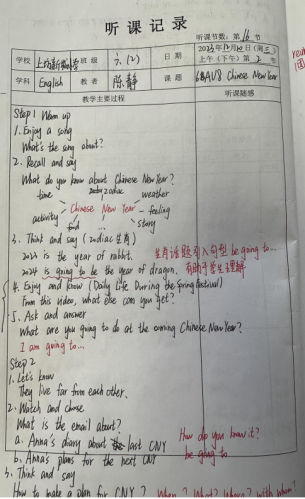 听课记录
听课节数：第 16 节
学校 班级 六.(2) 日期 2023年12月 日(周三) 上午(下午)第 2 节
学科 English 教者 陈静 课题 6AU8 Chinese New Year
教学主要过程 听课随感
Step 1 Warm up
1. Enjoy a song
What's the song about?
2. Recall and say
What do you know about Chinese New Year?
time zodiac weather
Chinese New Year feeling
activity food ... story
3. Think and say (zodiac 生肖)
2023 is the year of rabbit. 生肖话题引入句型 be going to...
2024 is going to be the year of dragon. 有助于学生理解
4. Enjoy and know (Daily Life During the Spring Festival)
From this video, what else can you get?
5. Ask and answer
What are you going to do at the coming Chinese New Year?
I am going to...
Step 2
1. Let's know
They live far from each other.
2. Watch and choose
What is the email about?
a. Anna's diary about last CNY How do you know it?
b. Anna's plans for the next CNY be going to
3. Think and say
How to make a plan for CNY? When? What? Where? with whom?